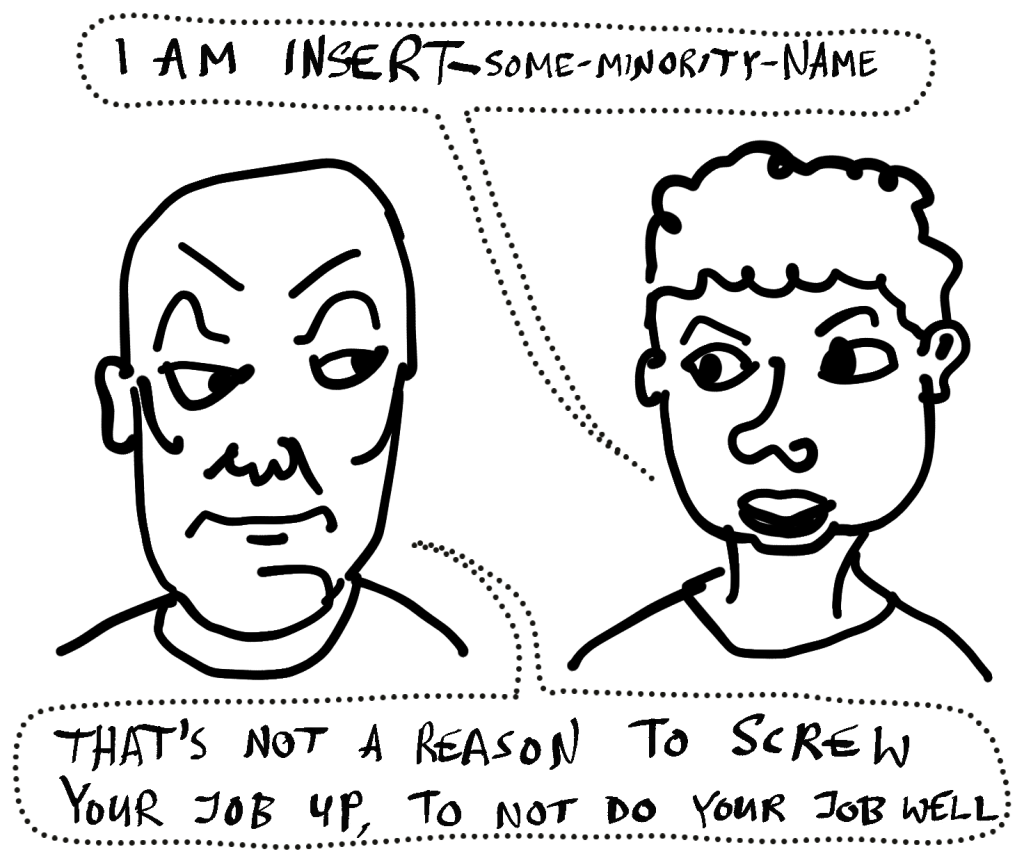 I AM INSERT-SOME-MINORITY-NAME
THAT'S NOT A REASON TO SCREW
YOUR JOB UP, TO NOT DO YOUR JOB WELL